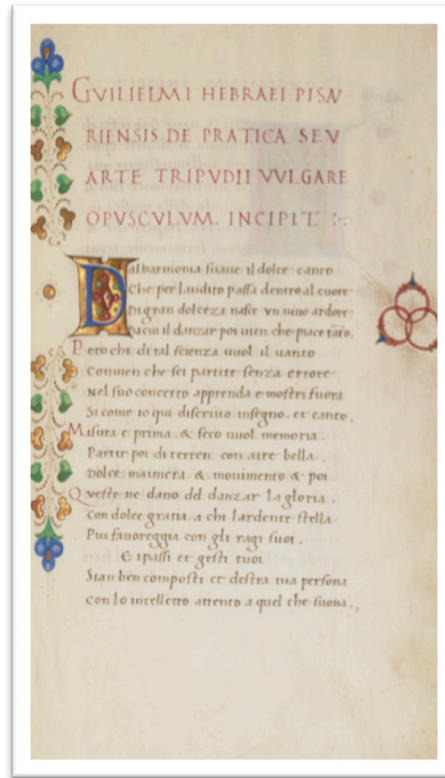 GVILIELMI HEBRAEI PISAV
RIENSIS DE PRATICA SEV
ARTE TRIPVDII VVLGARE
OPVSCVLVM. INCIPIT :·
Dalharmonia suaue il dolce canto
Che per laudito passa dentro al cuore
Di gran dolceza nasce vn uiuo ardore
Da cui il danzar poi uien che piace tāto.
Pero chi di tal scienza uuol il uanto
Conuien che sei partite senza errore
Nel suo concetto apprenda e mostri fuora
Si come io qui descriuo insegno. et canto.
Misura e prima. & seco uuol memoria.
Partir poi di terren con aire bella.
Dolce mainera & mouimento & poi
Queste ne dano del danzar la gloria.
Con dolce gratia a chi lardente stella
Piu fauoreggia con gli ragi suoi.
E i passi et gesti tuoi
Sian ben composti et destra tua persona
Con lo intelletto attento a quel che suona.,